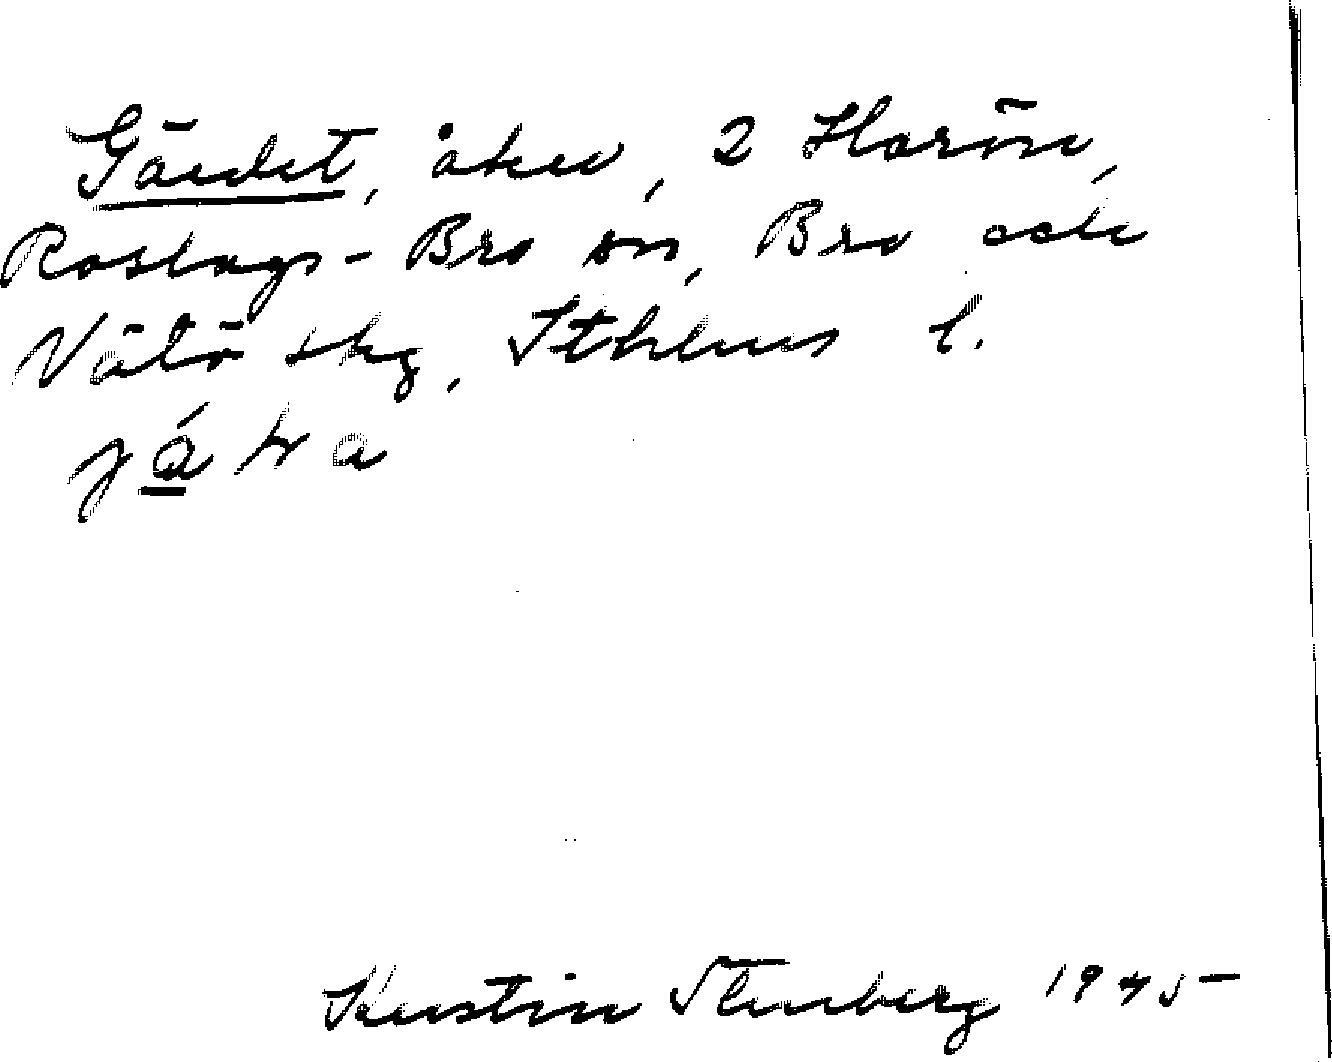 Gärdet, åker, 2 Harön,
Roslags-Bro sn, Bro och
Vätö skg, Sthlms l.
Kerstin Stenberg 1945